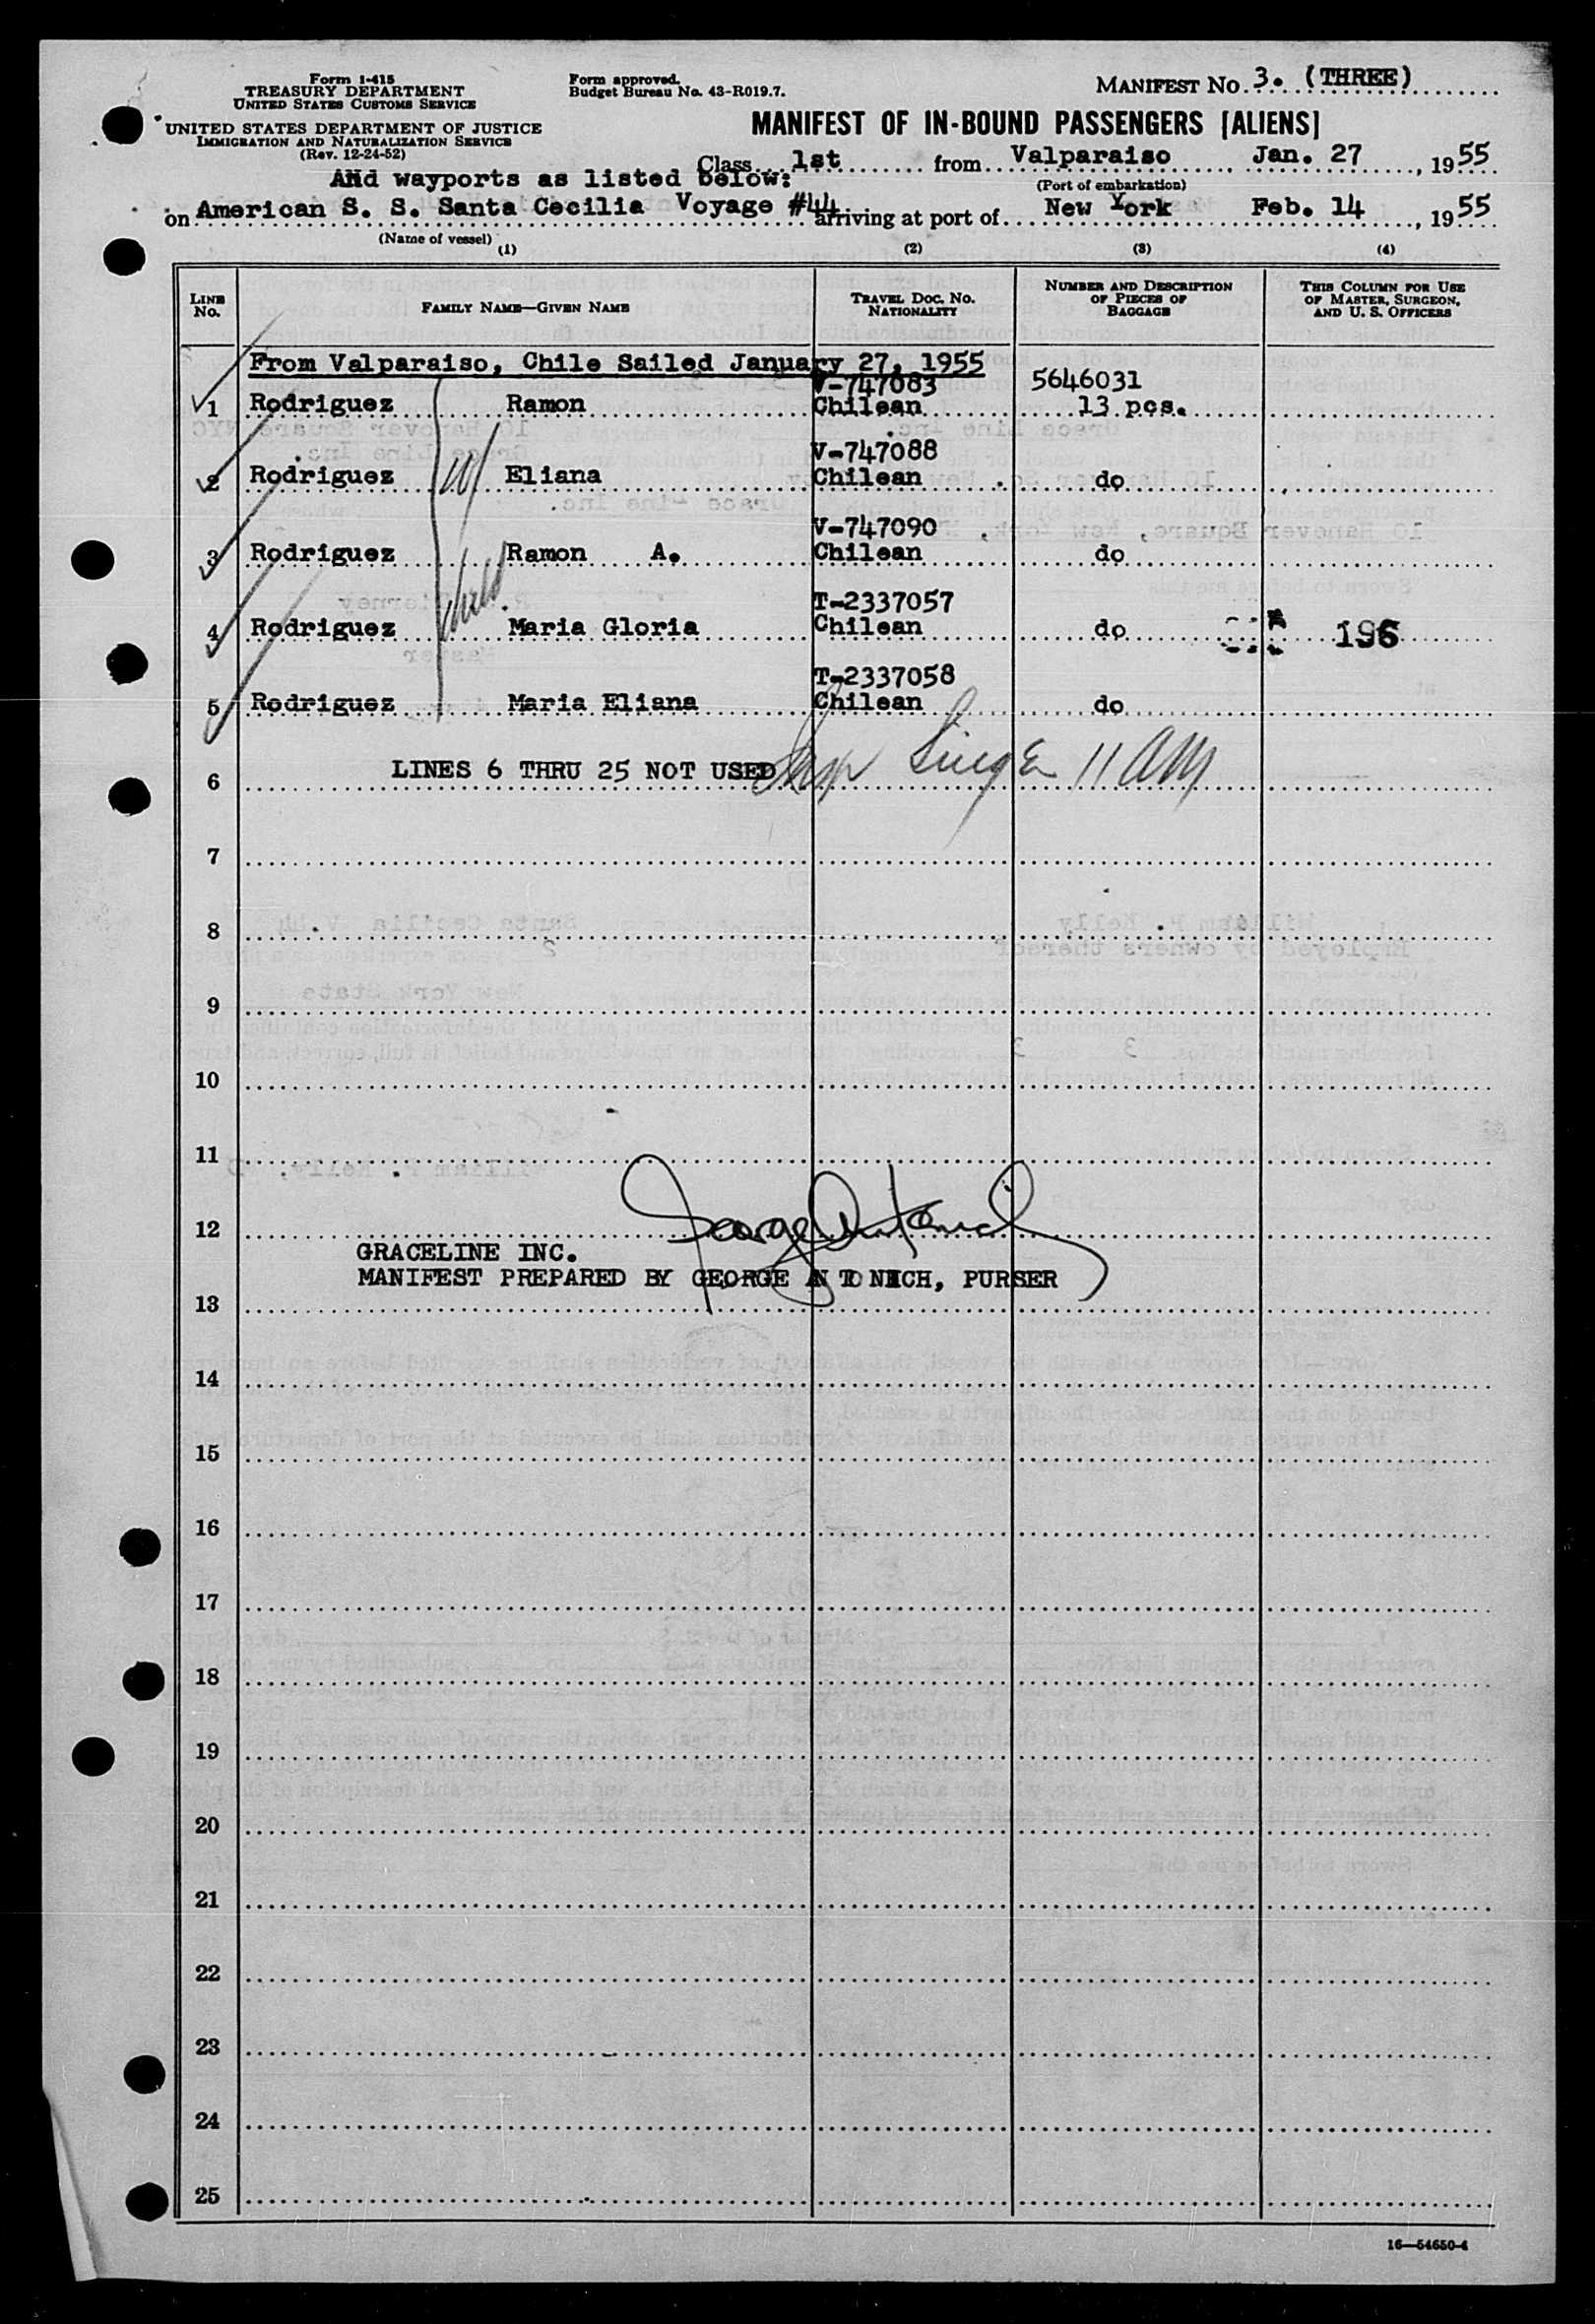 Form I-415
TREASURY DEPARTMENT
UNITED STATES CUSTOMS SERVICE
UNITED STATES DEPARTMENT OF JUSTICE
IMMIGRATION AND NATURALIZATION SERVICE
(Rev. 12-24-52)
Form approved.
Budget Bureau No. 43-R019.7.
MANIFEST No. 3. (THREE)
MANIFEST OF IN-BOUND PASSENGERS [ALIENS]
Class 1st from Valparaiso Jan. 27, 1955
And wayports as listed below:
(Port of embarkation)
on American S. S. Santa Cecilia Voyage #44 arriving at port of New York Feb. 14, 1955
(Name of vessel)
(1) (2) (3) (4)
LINE No. FAMILY NAME—GIVEN NAME TRAVEL DOC. NO. NATIONALITY NUMBER AND DESCRIPTION OF PIECES OF BAGGAGE THIS COLUMN FOR USE OF MASTER, SURGEON, AND U. S. OFFICERS
From Valparaiso, Chile Sailed January 27, 1955
V-747083 5646031
1 Rodriguez Ramon Chilean 13 pcs.
V-747088
2 Rodriguez W Eliana Chilean do
V-747090
3 Rodriguez Ramon A. Chilean do
T-2337057
4 Rodriguez child Maria Gloria Chilean do 196
T-2337058
5 Rodriguez Maria Eliana Chilean do
LINES 6 THRU 25 NOT USED 11 AM
6
7
8
9
10
11
12
George Antonich
GRACELINE INC.
MANIFEST PREPARED BY GEORGE ANTONICH, PURSER
13
14
15
16
17
18
19
20
21
22
23
24
25
16—54650-4